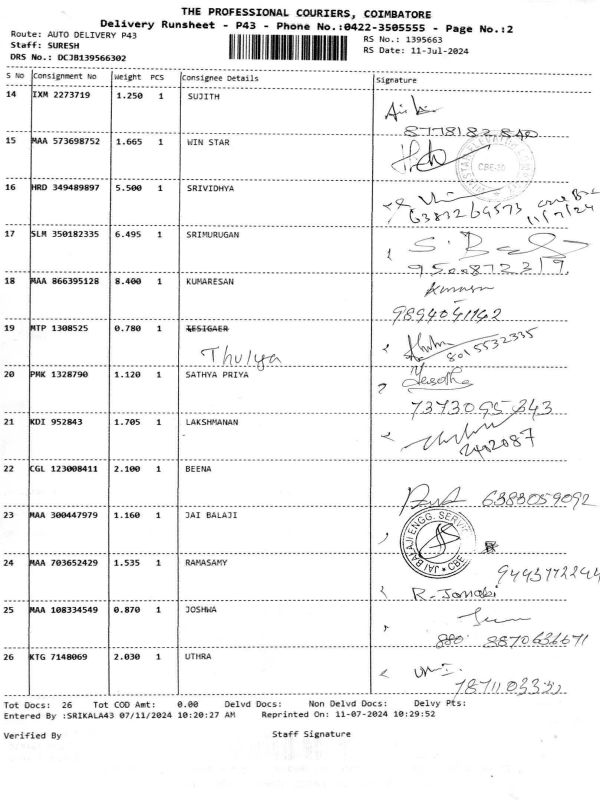 THE PROFESSIONAL COURIERS, COIMBATORE
Delivery Runsheet - P43 - Phone No.:0422-3505555 - Page No.:2
Route: AUTO DELIVERY P43
RS No.: 1395663
Staff: SURESH
RS Date: 11-Jul-2024
DRS No.: DCJB139566302
S No Consignment No Weight PCS Consignee Details Signature
14 IXM 2273719 1.250 1 SUJITH
8778182840
15 MAA 573698752 1.665 1 WIN STAR
CBE-30
16 HRD 349489897 5.500 1 SRIVIDHYA
6381269573
11/7/24
17 SLM 350182335 6.495 1 SRIMURUGAN
9500872319
18 MAA 866395128 8.400 1 KUMARESAN
9894041142
19 MTP 1308525 0.780 1
Thulya
8015532335
20 PMK 1328790 1.120 1 SATHYA PRIYA
7373095343
21 KDI 952843 1.705 1 LAKSHMANAN
22 CGL 123008411 2.100 1 BEENA
6383059092
23 MAA 300447979 1.160 1 JAI BALAJI
JAI BALAJI ENGG. SERVICE CBE
24 MAA 703652429 1.535 1 RAMASAMY
9443772244
R. Janaki
25 MAA 108334549 0.870 1 JOSHWA
880 8870636671
26 KTG 7148069 2.030 1 UTHRA
Tot Docs: 26 Tot COD Amt: 0.00 Delvd Docs: Non Delvd Docs: Delvy Pts:
Entered By :SRIKALA43 07/11/2024 10:20:27 AM Reprinted On: 11-07-2024 10:29:52
Verified By Staff Signature